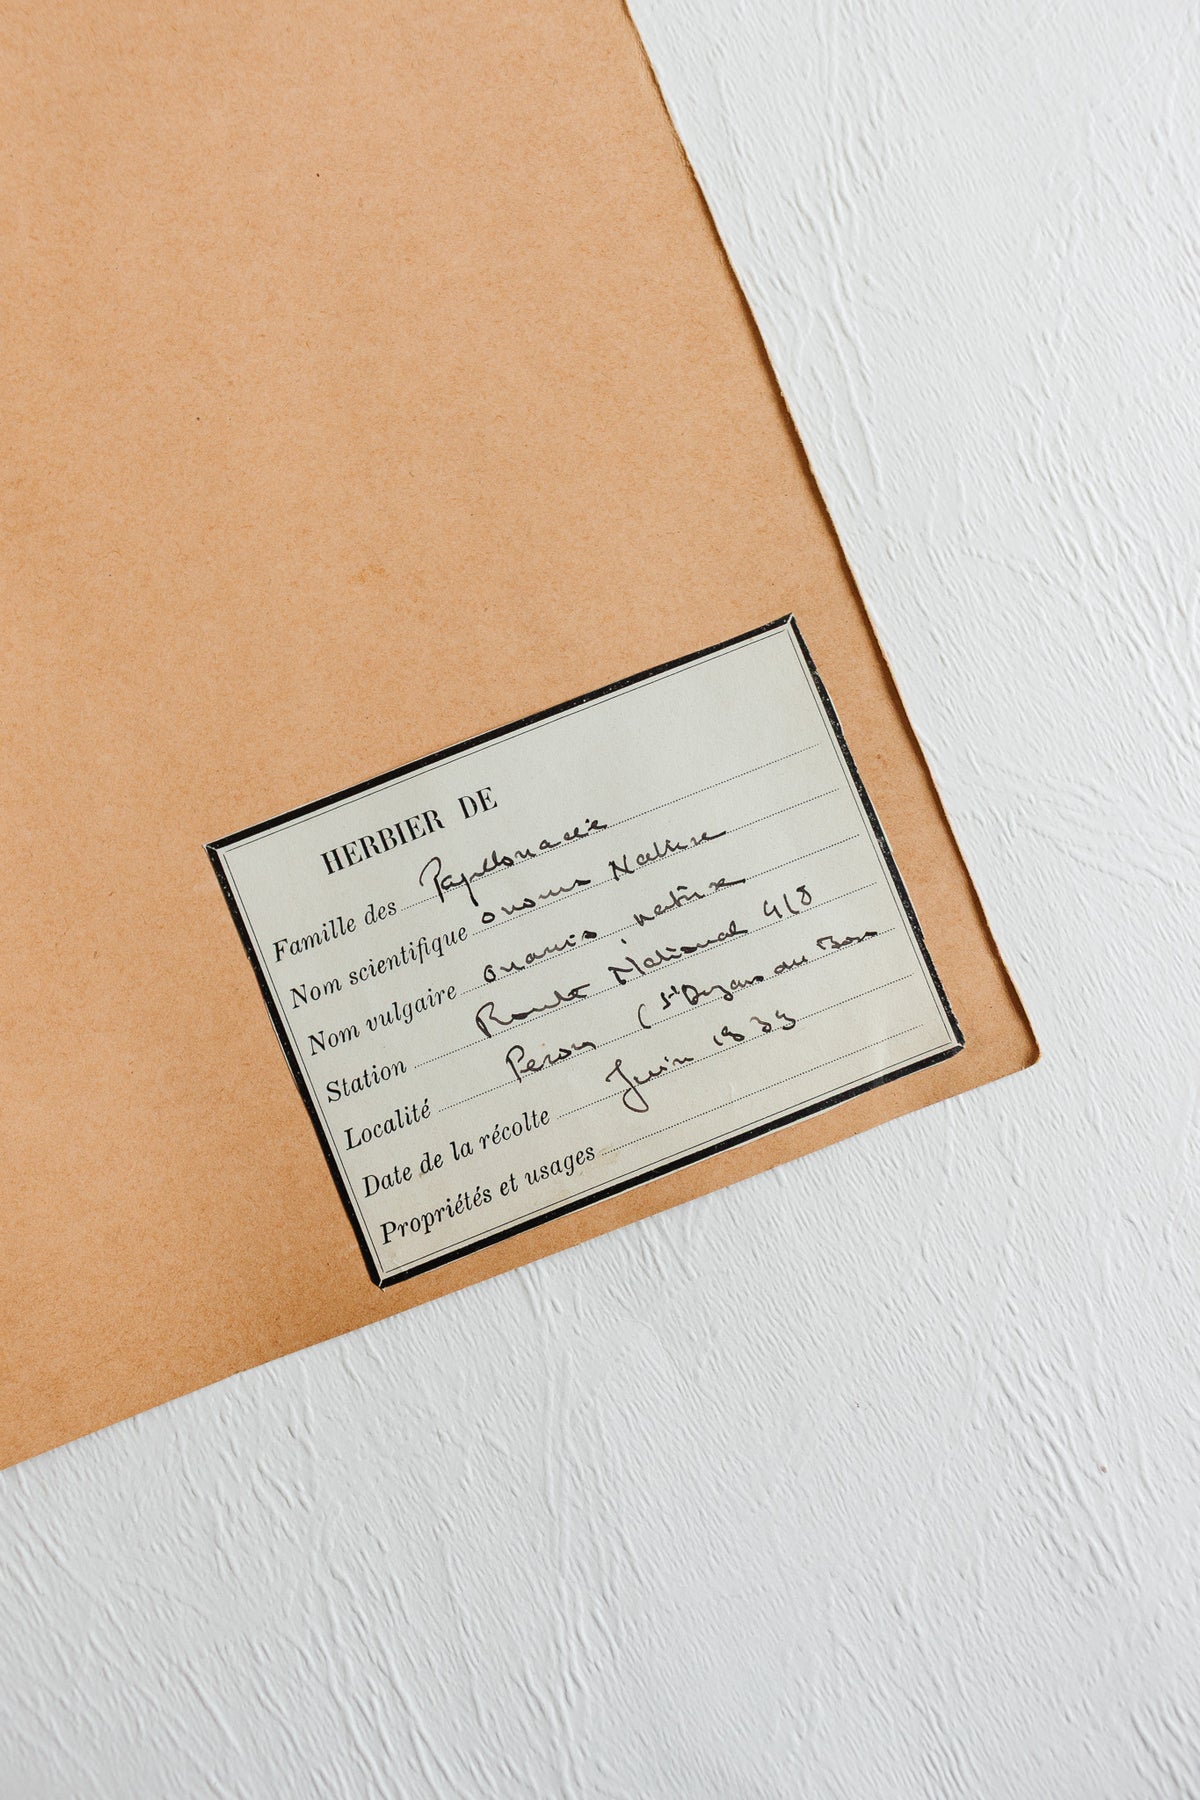 HERBIER DE
Famille des Papillonacée
Nom scientifique ononis Natrix
Nom vulgaire ononis natrix
Station Route National
Localité Peron (St
Date de la récolte Juin 1933
Propriétés et usages